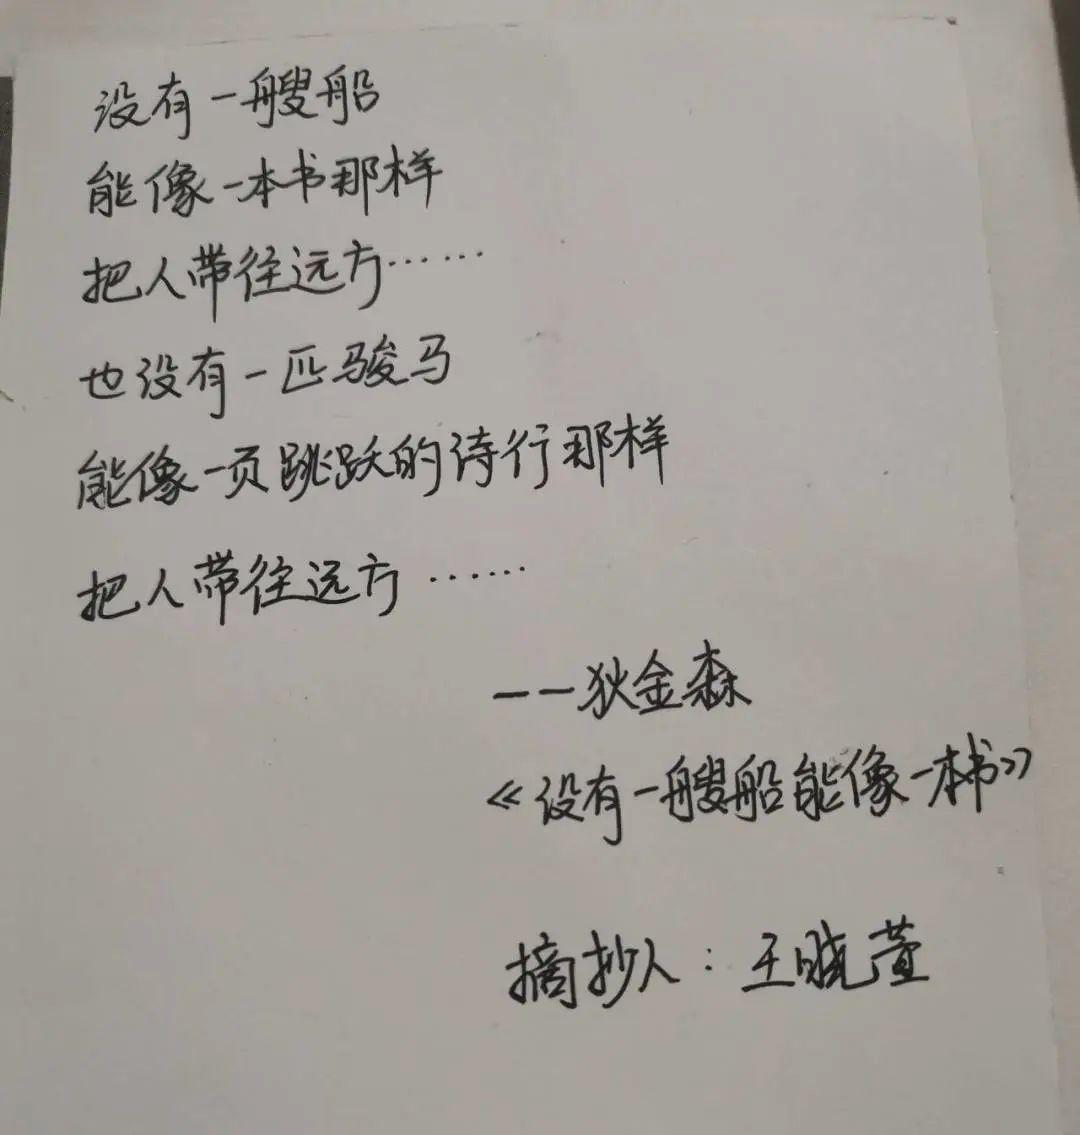 没有一艘船
能像一本书那样
把人带往远方……
也没有一匹骏马
能像一页跳跃的诗行那样
把人带往远方……
——狄金森
《没有一艘船能像一本书》
摘抄人：王晓萱